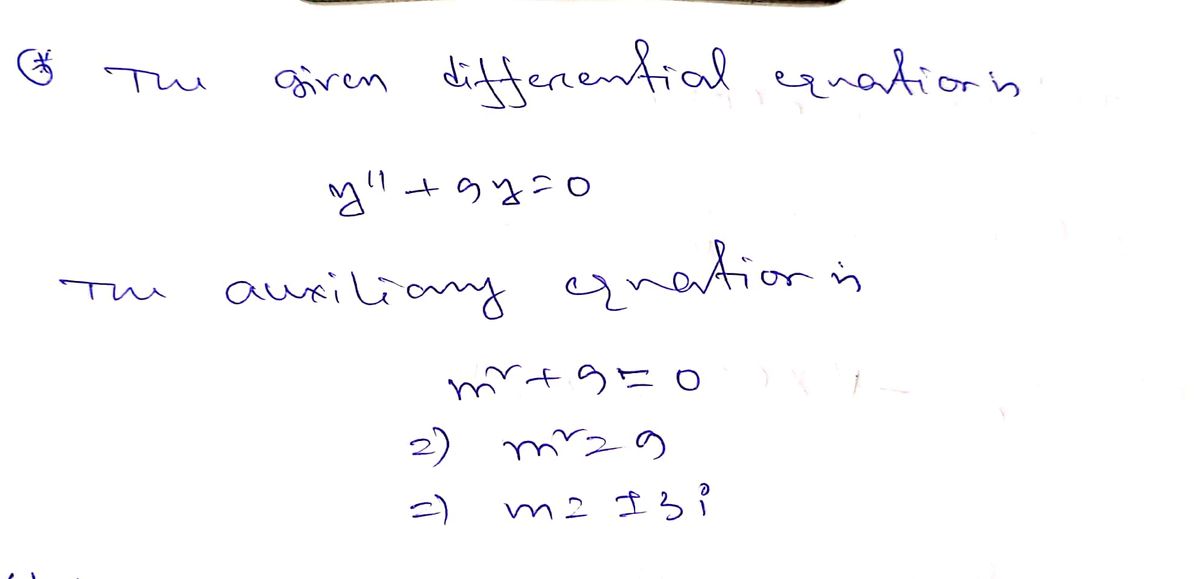 The given differential equation is
y'' + 9y = 0
The auxiliary equation is
m² + 9 = 0
=) m² = 9
=) m = ±3i